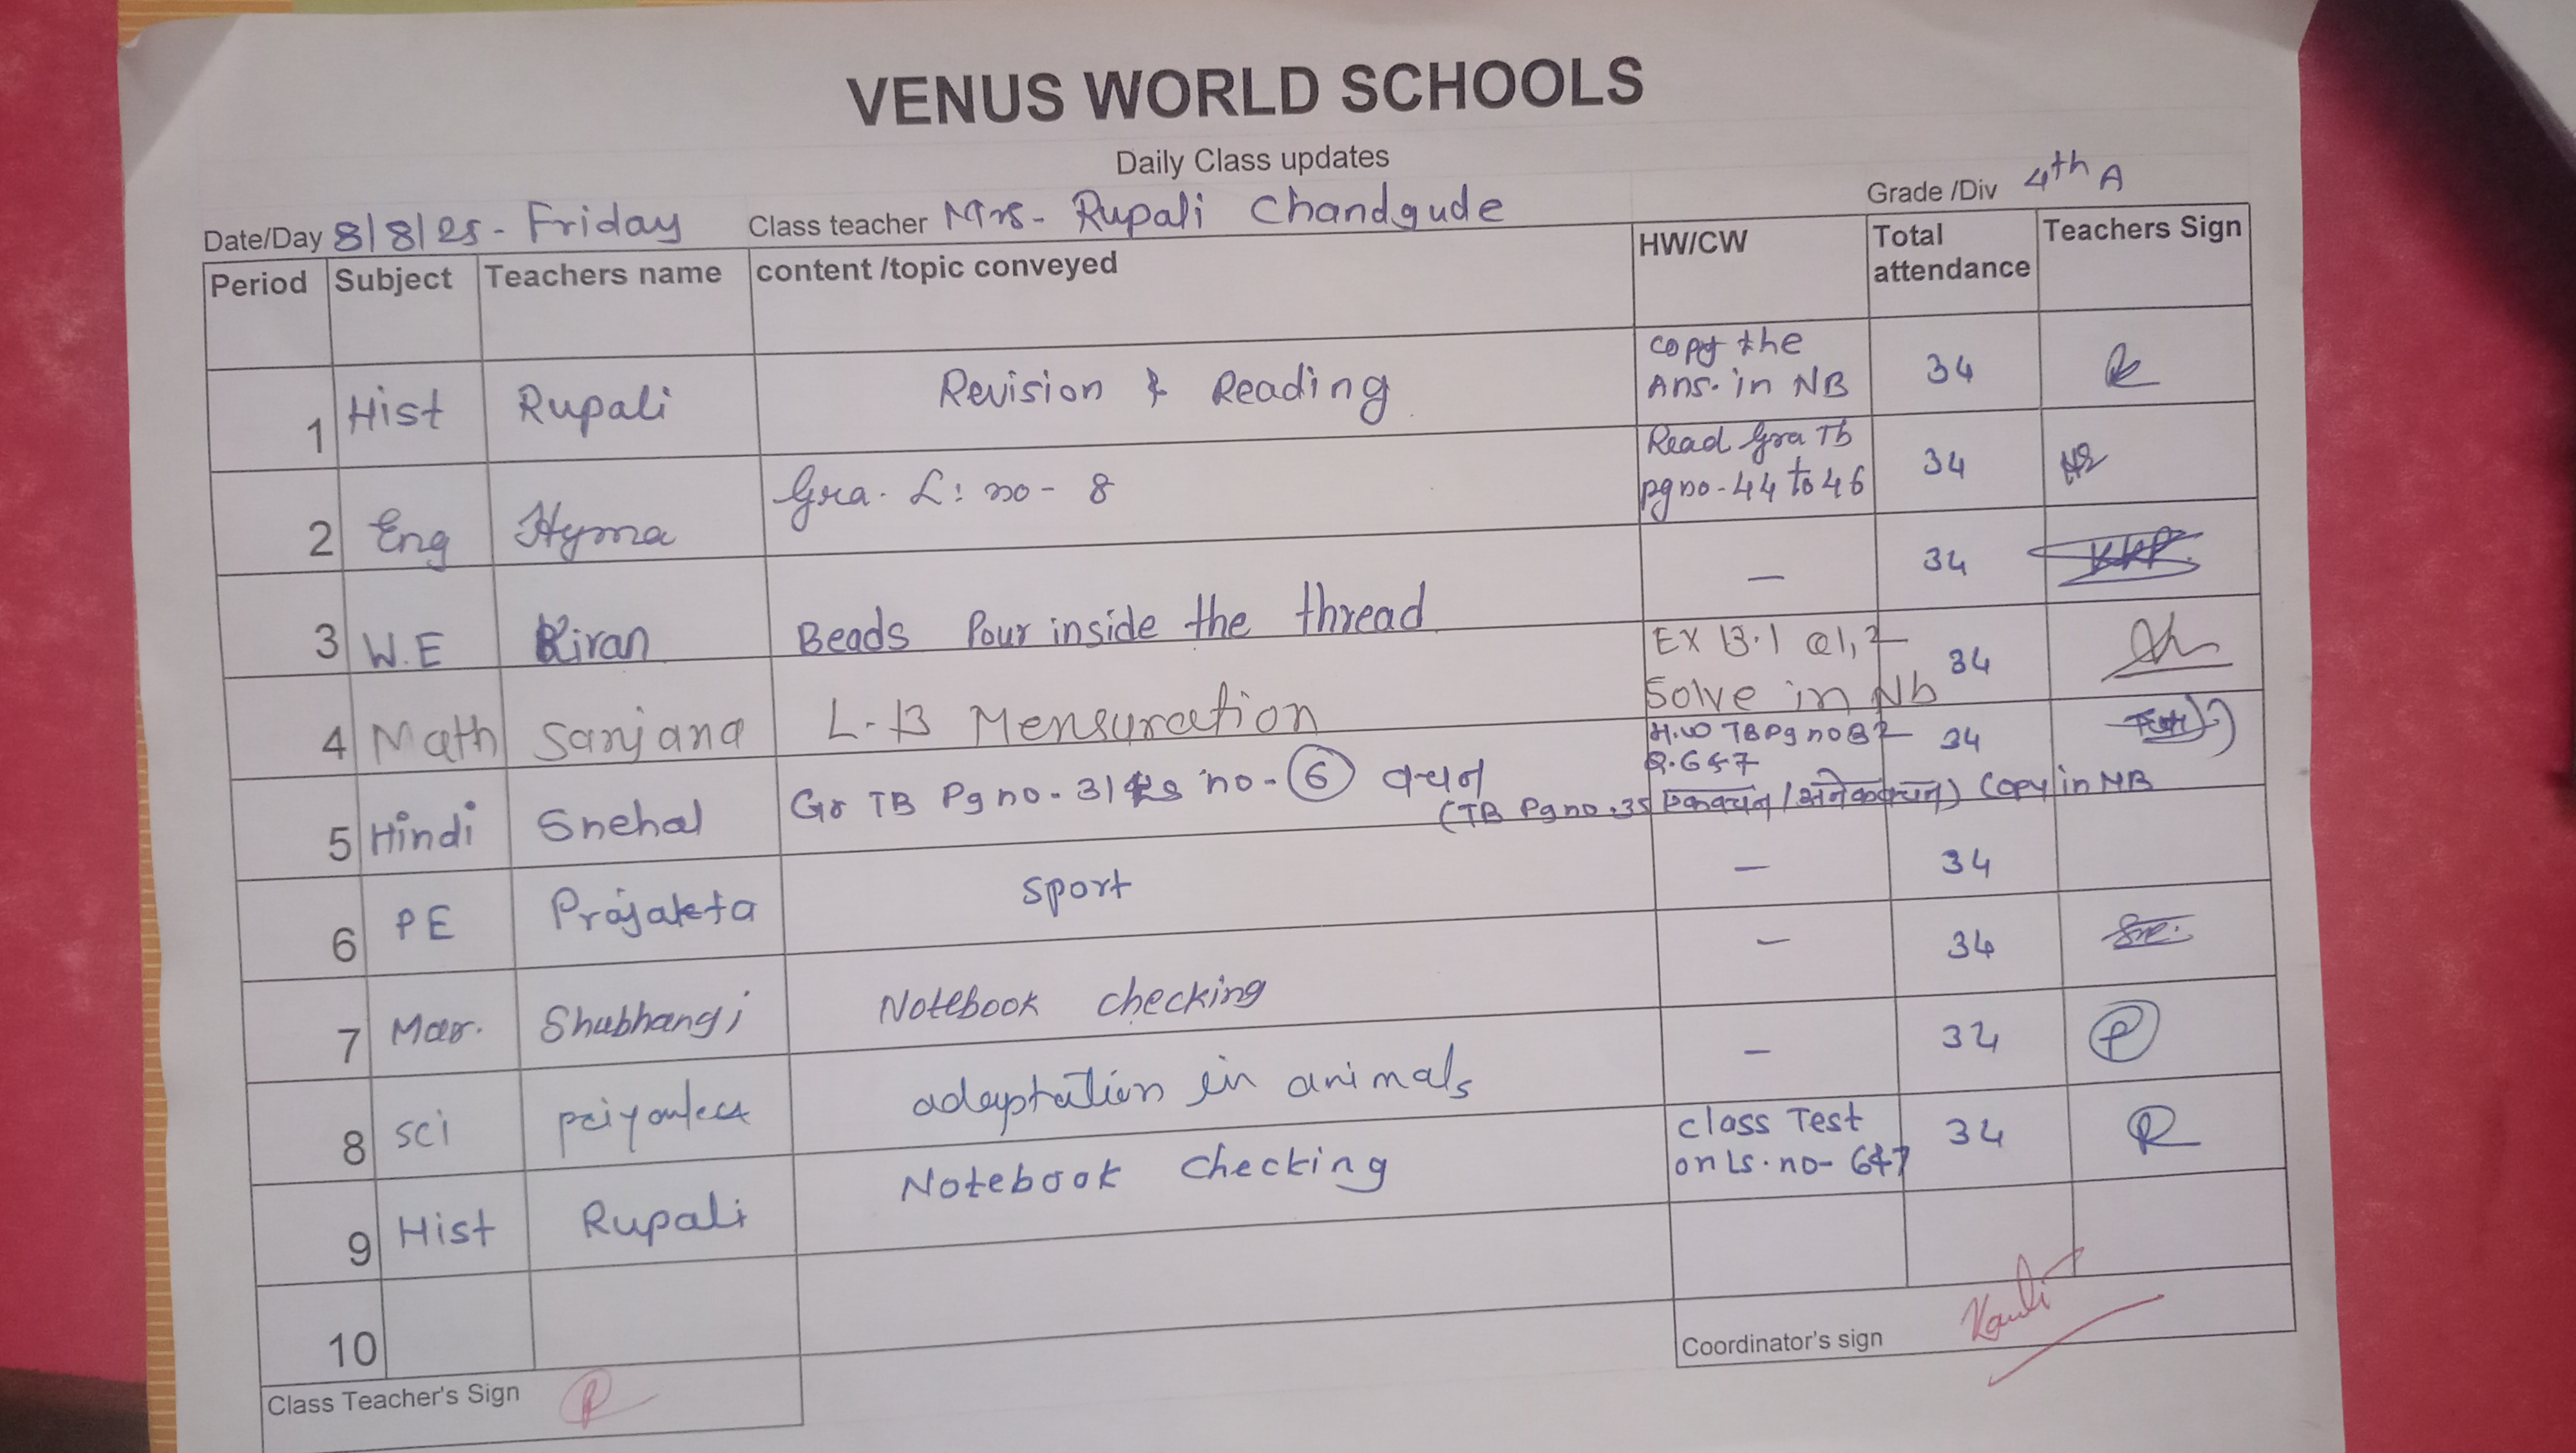 VENUS WORLD SCHOOLS
Daily Class updates
Date/Day 8/8/25 - Friday Class teacher Mrs. Rupali Chandgude Grade /Div 4th A
Period Subject Teachers name content /topic conveyed HW/CW Total attendance Teachers Sign
1 Hist Rupali Revision & Reading copy the Ans. in NB 34
2 Eng Hyma Gra. L: no - 8 Read Gra Tb pg no - 44 to 46 34
3 W.E Kiran Beads Pour inside the thread — 34
4 Math Sanjana L-13 Mensuration EX 13.1 Q1, 2 Solve in Nb 34
5 Hindi Snehal Gr TB Pg no. 31 no - 6 वचन H.W TB Pg no 32 Q. 6 & 7 34
(TB Pg no. 35 एकवचन / अनेकवचन) Copy in NB
6 PE Prajakta sport — 34
7 Mar. Shubhangi Notebook checking — 34
8 sci priyanka adaptation in animals — 34
9 Hist Rupali Notebook checking class Test on Ls. no - 6&7 34
10
Coordinator's sign
Class Teacher's Sign